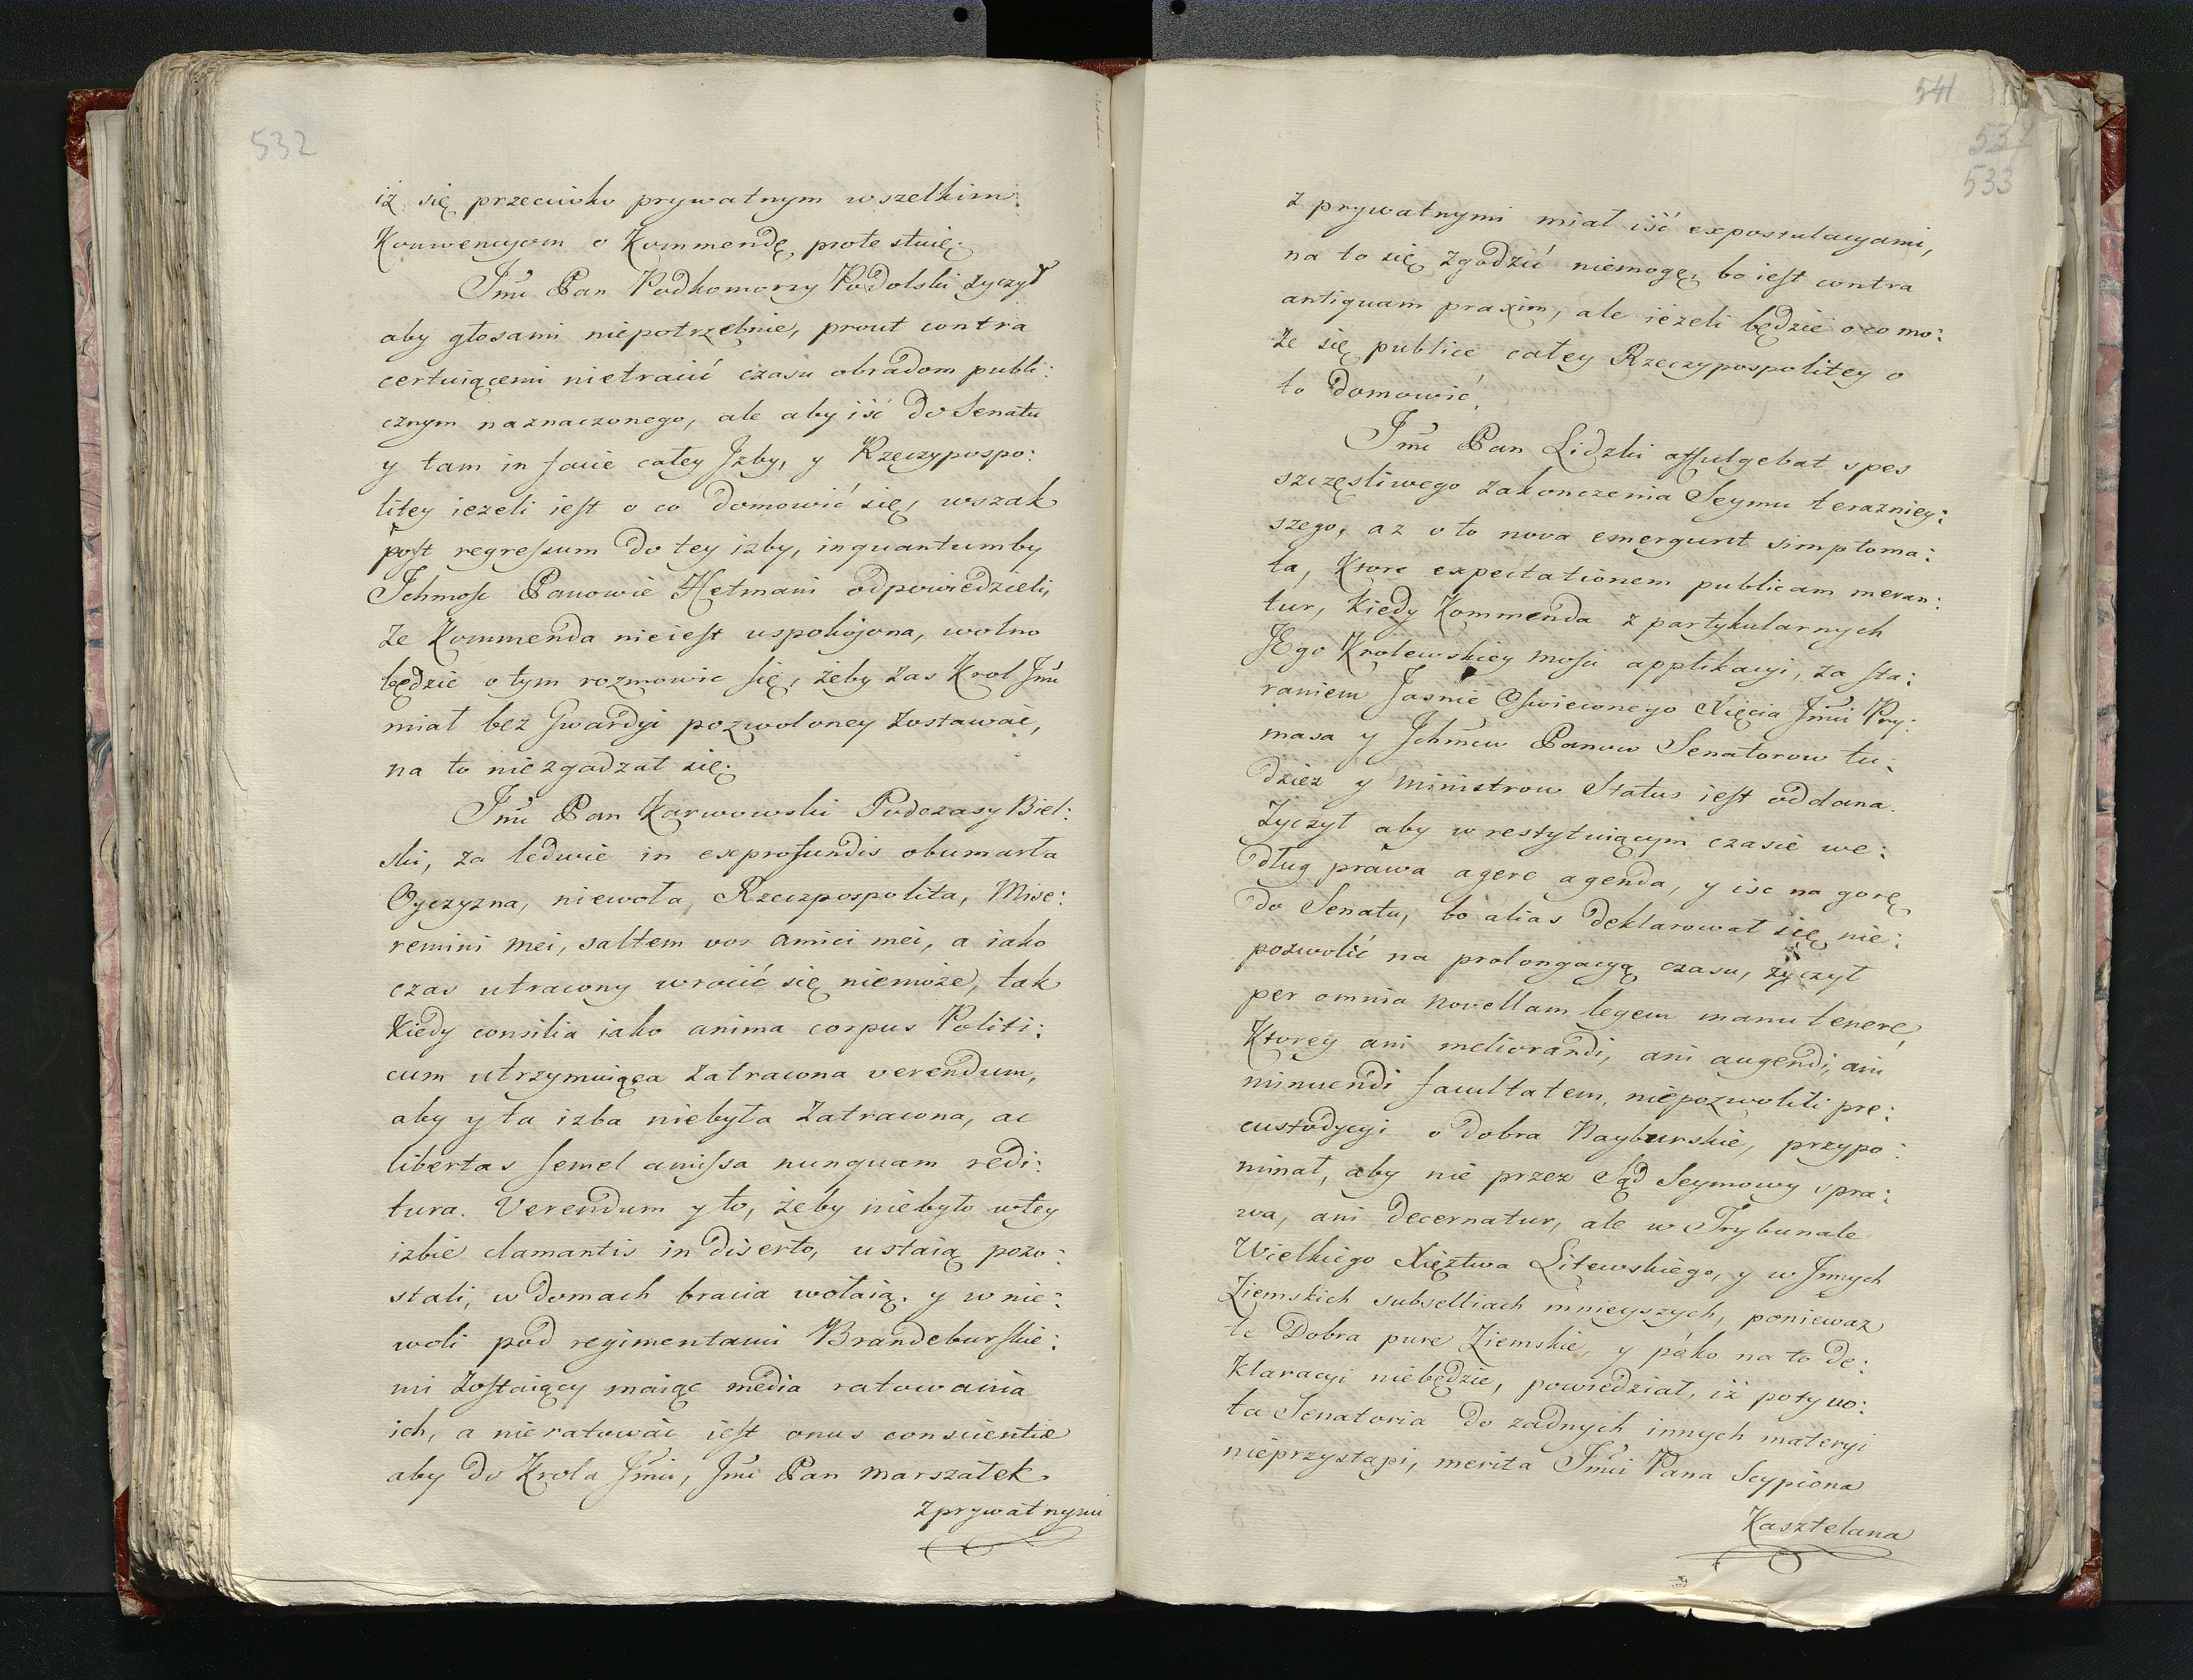 532
iż się przeciwko prywatnym wszelkim
Konwencyom o Kommendę protestuię.
Jmć Pan Podkomorzy Podolski życzył
aby głosami niepotrzebnie, prout contra
certuiącemi nietracić czasu obradom publi:
cznym naznaczonego, ale aby iść do Senatu
y tam in facie całey Jzby, y Rzeczypospo:
litey ieżeli iest o co domowić się, wszak
post regressum do tey izby, inquantumby
Ichmość Panowie Hetmani odpowiedzieli,
że Kommenda nieiest uspokojona, wolno
będzie o tym rozmowic się, żeby zas Krol Jmć
miał bez Gwardyi pozwoloney zostawać,
na to niezgadzał się.
Jmć Pan Karwowski Podczasy Biel:
ski, za ledwie in exprofundis obumarła
Oyczyzna, niewoła, Rzeczpospolita, Mise:
remini mei, saltem vos amici mei, a iako
czas utracony wrócić się niemoże, tak
Kiedy consilia iako anima corpus Politi:
cum utrzymuiąca zatracona verendum,
aby y ta izba niebyła zatracona, ac
libertas semel amissa nunquam redi:
tura. Verendum y to, żeby niebyło w tey
izbie clamantis in diserto, ustaią pozo:
stali, w domach bracia wołaią. y w nie:
woli pod regimentami Brandeburskie:
mi zostaiący maiąc media ratowania
ich, a nieratować iest onus conscientiæ
aby do Krola Jmci, Jmć Pan Marszałek
z prywatnymi
541
532
533
z prywatnymi miał iść expostulacyami,
na to się zgodzić niemogę, bo iest contra
antiquam praxim, ale ieżeli będzie o co mo:
że się publice całey Rzeczypospolitey o
to domowić.
Jmć Pan Lidzki affulgebat spes
szczęsliwego zakonczenia Seymu terazniey:
szego, aż oto nova emergunt simptoma:
ta, Ktore expectationem publicam moran:
tur, Kiedy Kommenda z partykularnych
JEgo Krolewskiey Mości applikacyi, za sta:
raniem Jasnie Oswieconego Xięcia Jmci Pry:
masa y Ichmciow Panow Senatorow tu:
dziez y Ministrow Status iest oddana.
Życzył aby w restytuiącym czasie we:
dług prawa agere agenda, y isc na gorę
do Senatu, bo alias deklarował się nie:
pozwolić na prolongacyą czasu, życzył
per omnia novellam legem manutenere,
Ktorey ani meliorandi, ani augendi, ani
minuendi facultatem, niepozwolili pre:
custodycyi o dobra Nayburskie, przypo:
minał, aby nie przez Sąd Seymowy spra:
wa, ani decernatur, ale w Trybunale
Wielkiego Xięztwa Litewskiego, y w Jnnych
Ziemskich subselliach mnieyszych, ponieważ
te Dobra pure Ziemskie, y póko na to de:
klaracyi niebędzie, powiedział, iż poty vo:
ta Senatoria do zadnych innych materyi
nieprzystąpi, merita Jmci Pana Scypiona
Kasztelana